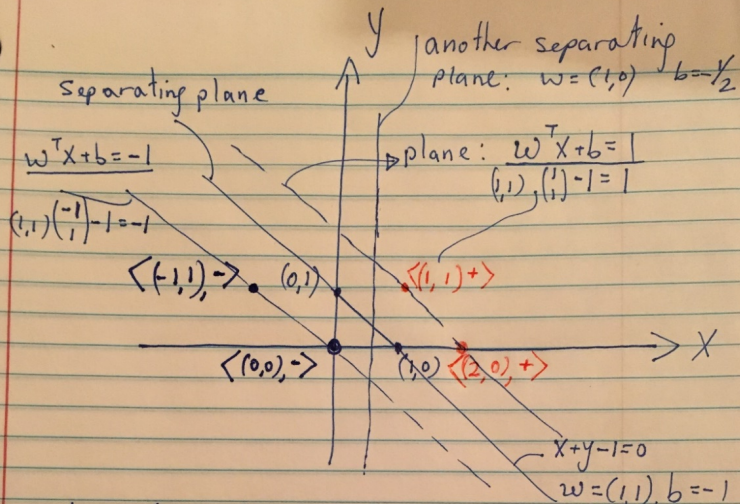 Y
another separating
plane: w = (1,0) b=-1/2
separating plane
wᵀX+b = -1
plane: wᵀX+b = 1
(1,1) (1 1) -1 = 1
(1,1) (-1 1) -1 = -1
<(-1,1), ->
(0,1)
<(1,1) +>
X
<(0,0), ->
(1,0)
<(2,0), +>
x+y-1=0
w=(1,1), b=-1